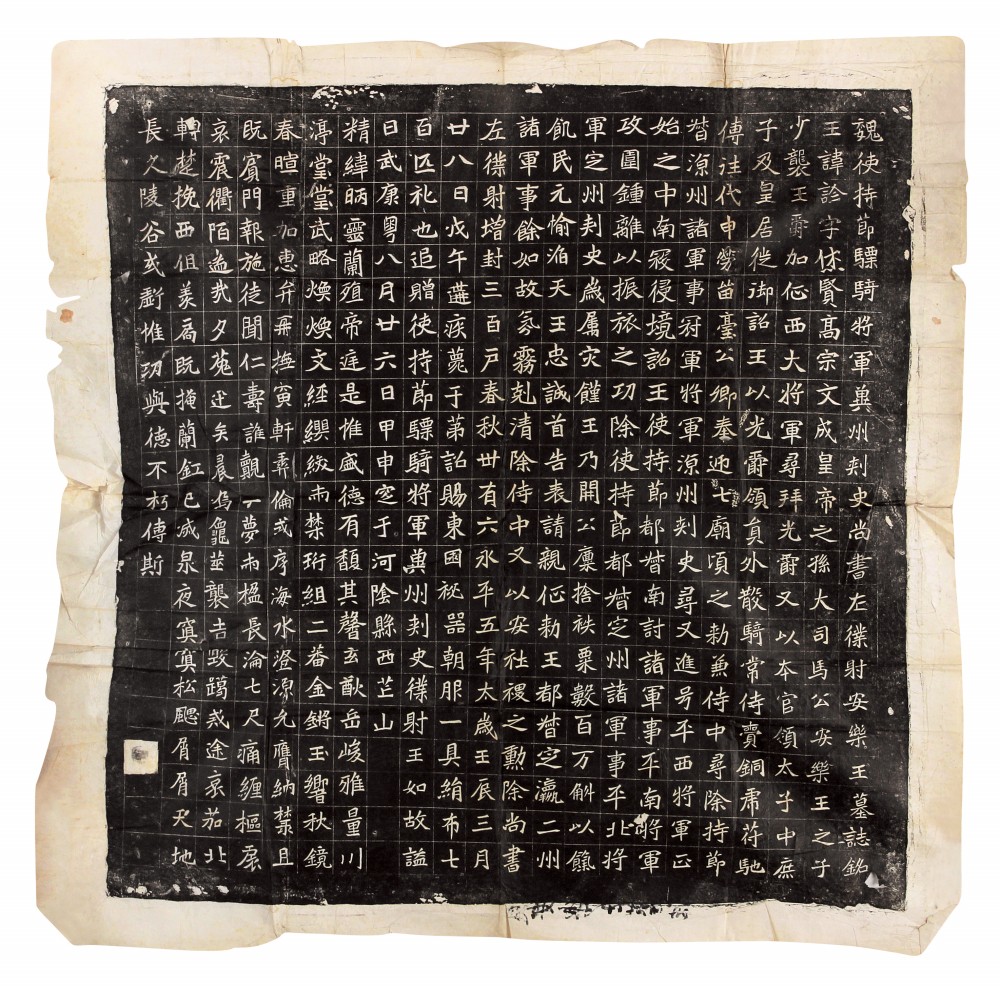 魏使持節驃騎將軍冀州刾史尚書左僕射安樂王墓誌銘
王諱詮字休賢髙宗文成皇帝之孫大司馬公安樂王之子
少襲王爵加征西大將軍尋拜光爵又以本官領太子中庶
子及皇居徙御詔王以光爵領員外散騎常侍賫銅虎苻馳
傳往代申勞苗臺公卿奉迎七廟頃之勑兼侍中尋除持節
督涼州諸軍事冠軍將軍涼州刾史尋又進号平西將軍正
始之中南寇侵境詔王使持節都督南討諸軍事平南將軍
攻圍鍾離以振旅之功除使持節都督定州諸軍事平北將
軍定州刾史歲属灾饉王乃開公廩捨秩粟數百万斛以餼
飢民元愉滔天王忠誠首告表請親征勑王都督定瀛二州
諸軍事餘如故氛霧剋清除侍中又以安社稷之勳除尚書
左僕射增封三百戶春秋卅有六永平五年太歲壬辰三月
廿八日戊午遘疾薨于第詔賜東園秘器朝服一具絹布七
百匹礼也追贈使持節驃騎將軍冀州刾史僕射王如故謚
曰武康粤八月廿六日甲申窆于河陰縣西芒山
精緯昞靈蘭殖帝庭是惟盛德有馥其馨玄猷岳峻雅量川
渟堂堂武略煥煥文經纓紱兩禁珩組二蕃金鏘玉響秋鏡
春暄重加惠弁再撫寅軒彞倫或序海水澄源允膺納禁且
既賓門報施徒聞仁壽誰覿一夢兩楹長淪七尺痛纏樞扆
哀震衢陌夕菟迅矣晨烏龜筮襲吉戒途哀茄北
轉楚挽西徂羨扃既掩蘭釭已滅泉夜寘寘松颸屑屑天地
長久陵谷或虧惟功與德不朽傳斯